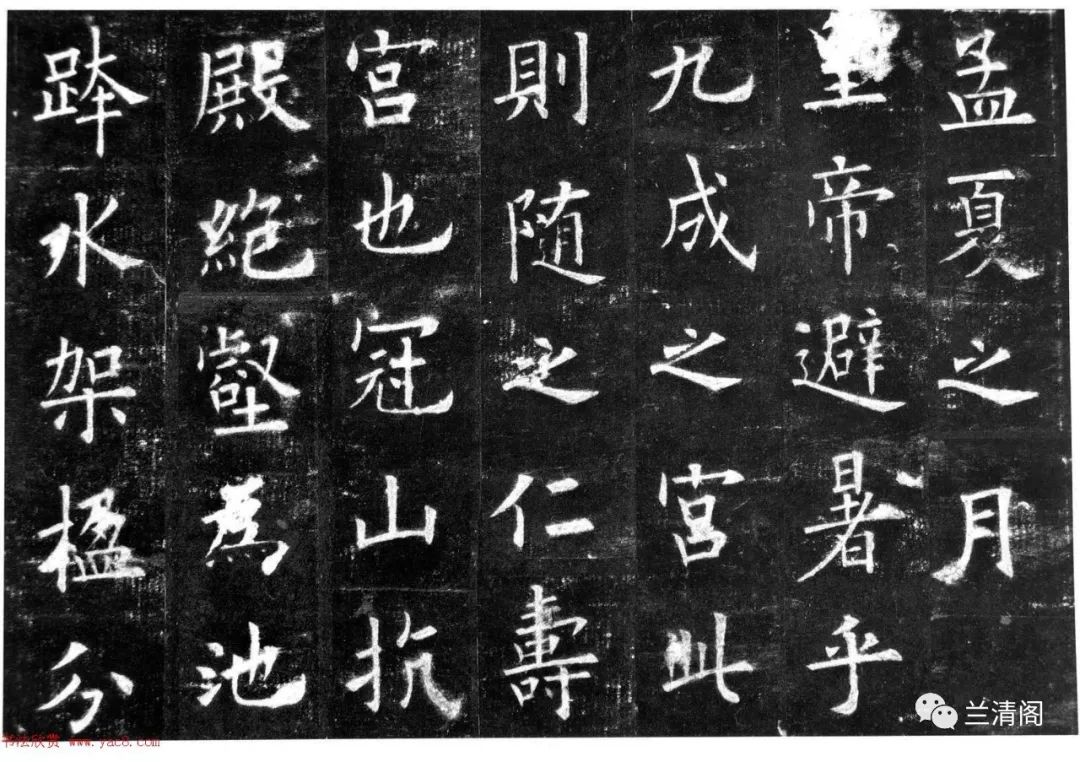 孟夏之月
皇帝避暑乎
九成之宮此
則隨之仁壽
宮也冠山抗
殿絕壑為池
跨水架楹分
兰清阁
书法欣赏 www.yac8.com